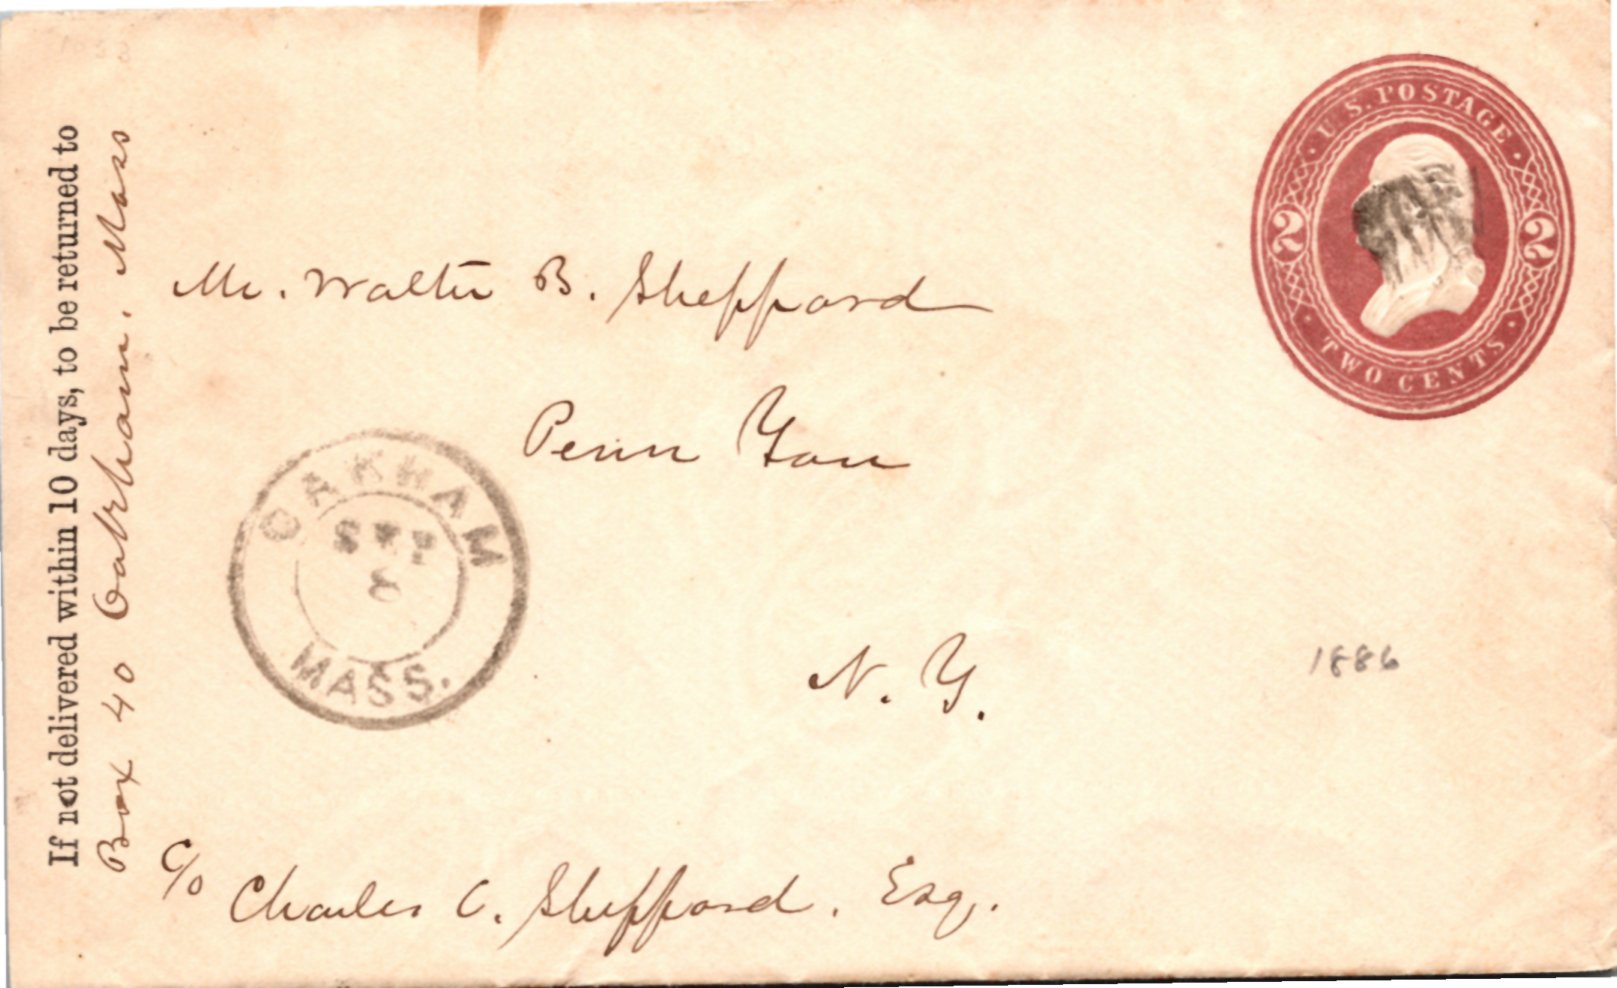 If not delivered within 10 days, to be returned to
Box 40 Oakham, Mass
U. S. POSTAGE
2 2
TWO CENTS
Mr. Walter B. Sheppard
Penn Yan
N. Y.
OAKHAM
SEP
8
MASS.
1886
C/o Charles C. Sheppard, Esq.